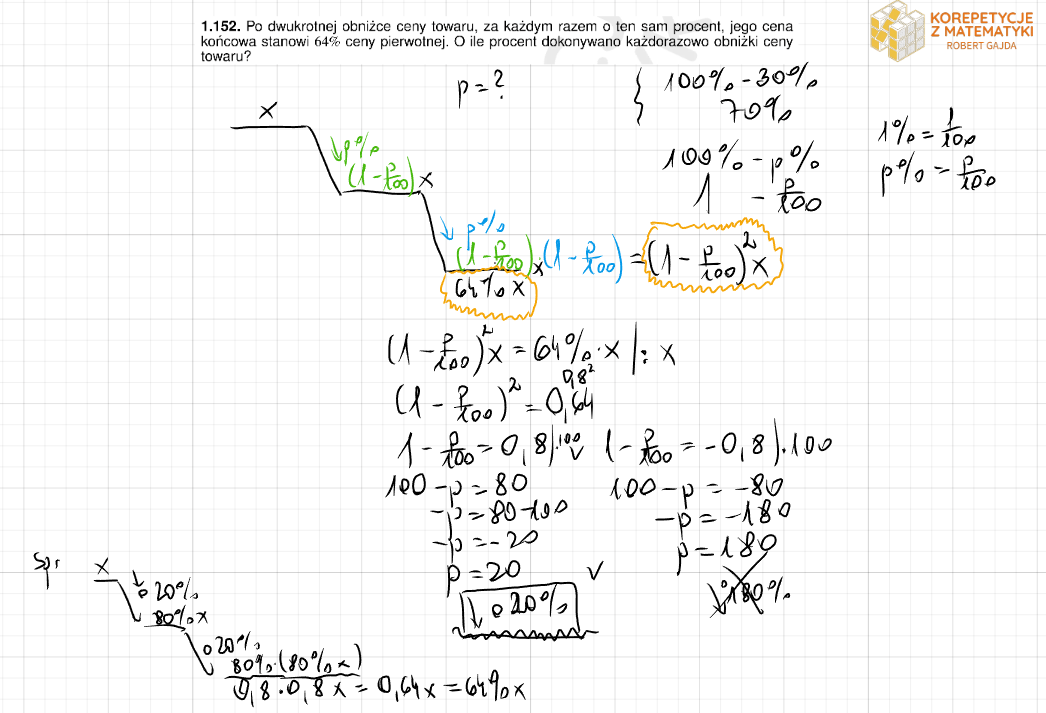 1.152. Po dwukrotnej obniżce ceny towaru, za każdym razem o ten sam procent, jego cena
końcowa stanowi 64% ceny pierwotnej. O ile procent dokonywano każdorazowo obniżki ceny
towaru?
KOREPETYCJE
Z MATEMATYKI
ROBERT GAJDA
p = ?
100% - 30%
70%
1% = 1/100
p% = p/100
100% - p%
1 - p/100
x
↓p%
(1 - p/100) x
↓ p%
(1 - p/100) x (1 - p/100) = (1 - p/100)² x
64% x
(1 - p/100)² x = 64% · x |: x
0,8²
(1 - p/100)² = 0,64
1 - p/100 = 0,8 |·100 ∨ 1 - p/100 = -0,8 |·100
100 - p = 80
100 - p = -80
-p = 80-100
-p = -180
-p = -20
p = 180
p = 20 ∨
↓ o 180%
↓ o 20%
Spr
x
↓ o 20%
80% x
↓ o 20%
80% · (80% x)
0,8 · 0,8 x = 0,64 x = 64% x